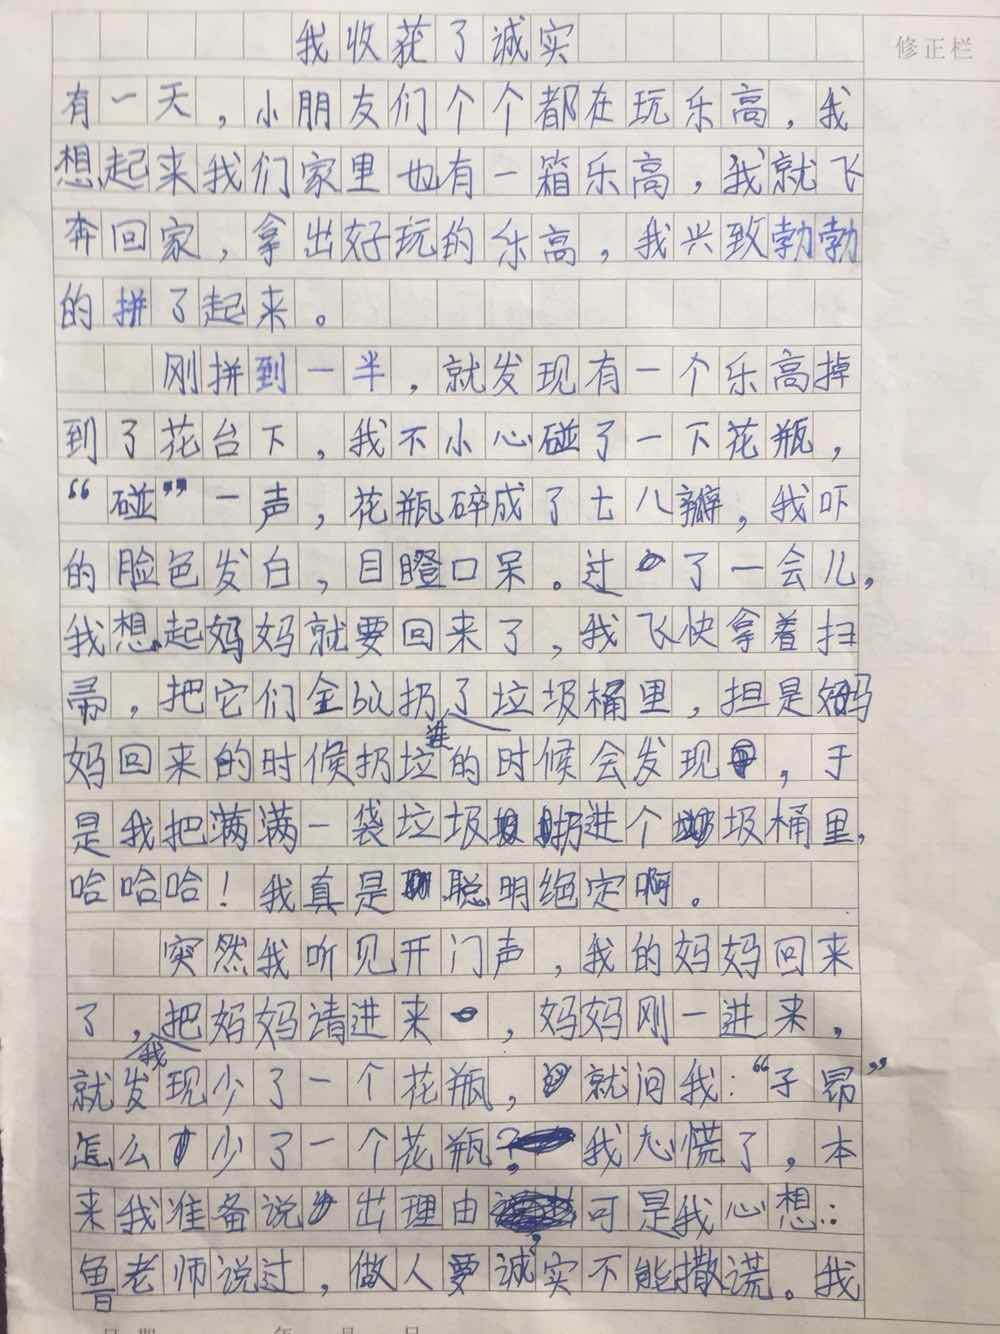 修正栏
我收获了诚实
有一天，小朋友们个个都在玩乐高，我
想起来我们家里也有一箱乐高，我就飞
奔回家，拿出好玩的乐高，我兴致勃勃
的拼了起来。
刚拼到一半，就发现有一个乐高掉
到了花台下，我不小心碰了一下花瓶，
“碰”一声，花瓶碎成了七八瓣，我吓
的脸色发白，目瞪口呆。过了一会儿，
我想起妈妈就要回来了，我飞快拿着扫
帚，把它们全以扔进了垃圾桶里，担是妈
妈回来的时候扔垃的时候会发现，于
是我把满满一袋垃圾扔进个圾桶里，
哈哈哈！我真是聪明绝定啊。
突然我听见开门声，我的妈妈回来
了，我把妈妈请进来，妈妈刚一进来，
就发现少了一个花瓶，就问我：“子昂”
怎么少了一个花瓶？我心慌了，本
来我准备说出理由，可是我心想：
鲁老师说过，做人要诚实不能撒谎。我